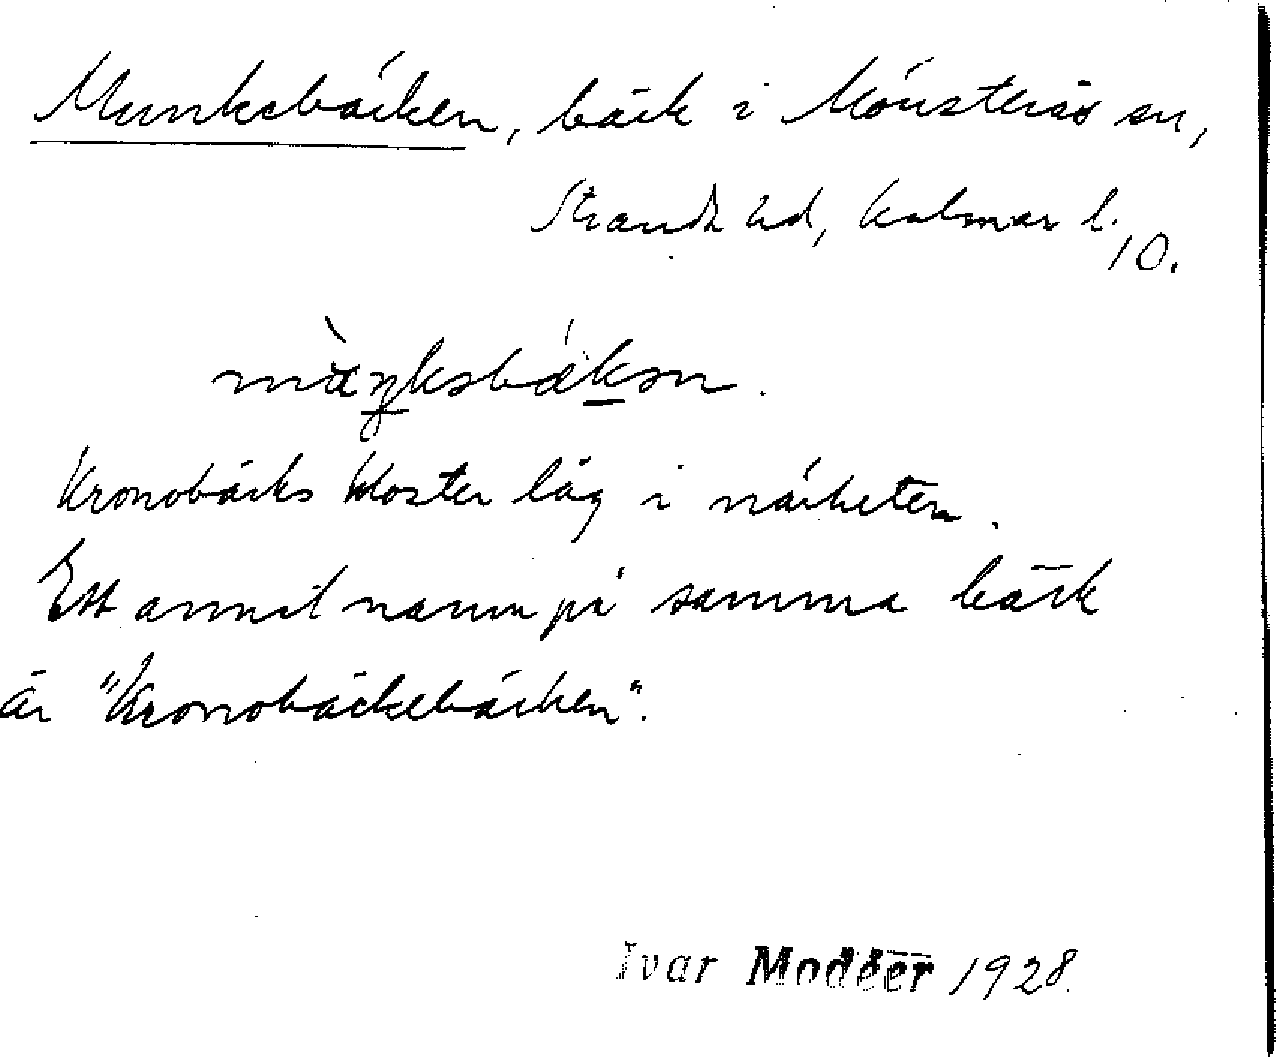 Munkebäcken, bäck i Mönsterås sn,
Strands hd, Kalmar l.
10.
Kronobäcks kloster låg i närheten.
Ett annat namn på samma bäck
är "Kronobäckebäcken".
Ivar Modéer 1928.